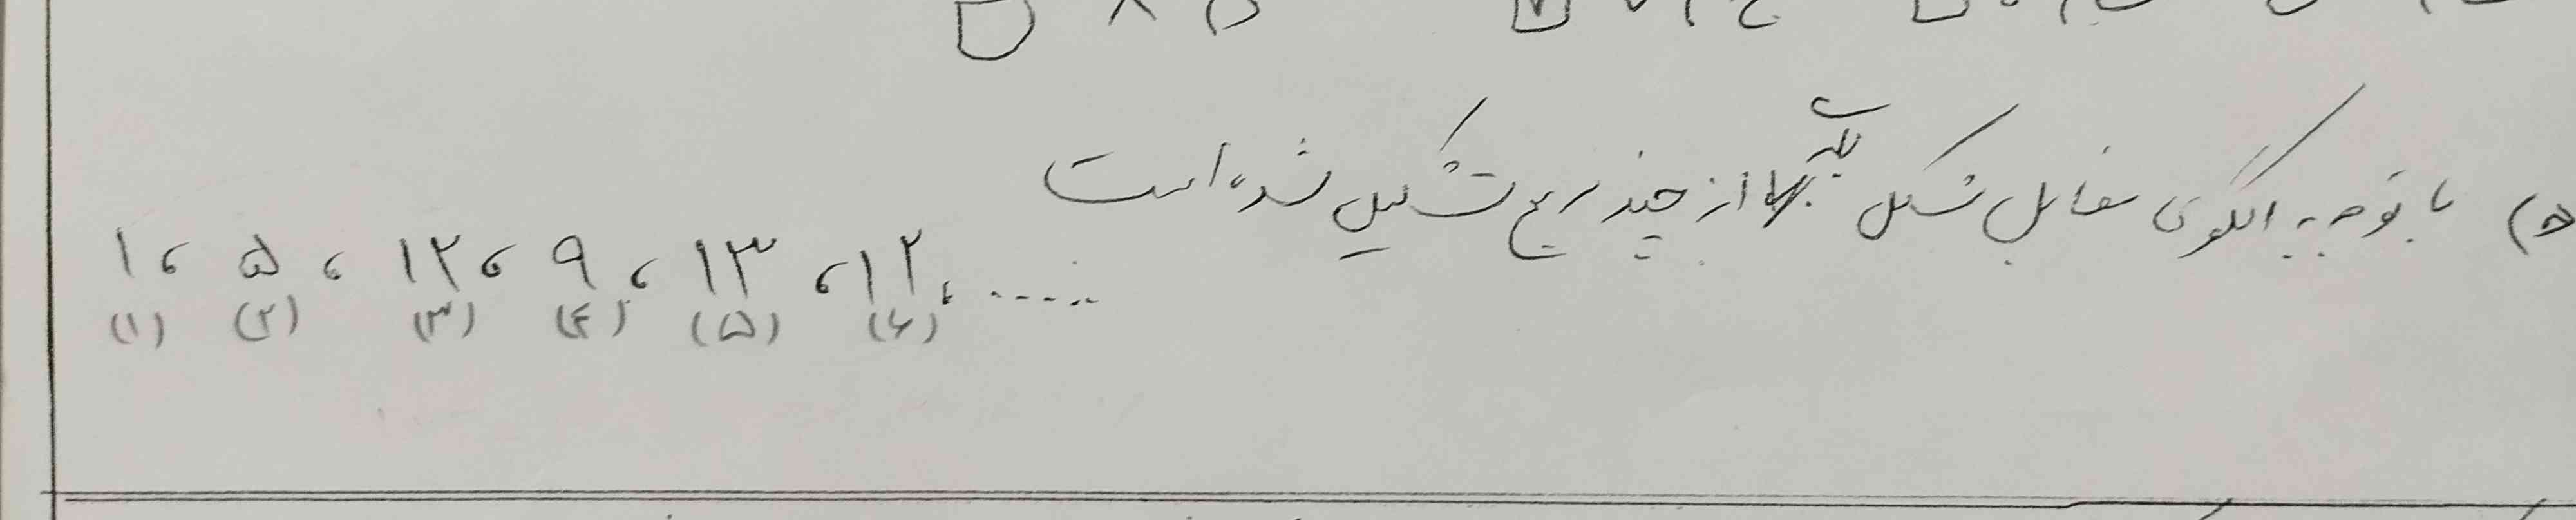 ۵) با توجه به الگوی مقابل شکل از چند مربع تشکیل شده است
۱، ۵، ۱۲، ۹، ۱۳، ۱۲، .....
(۱) (۲) (۳) (۴) (۵) (۶)